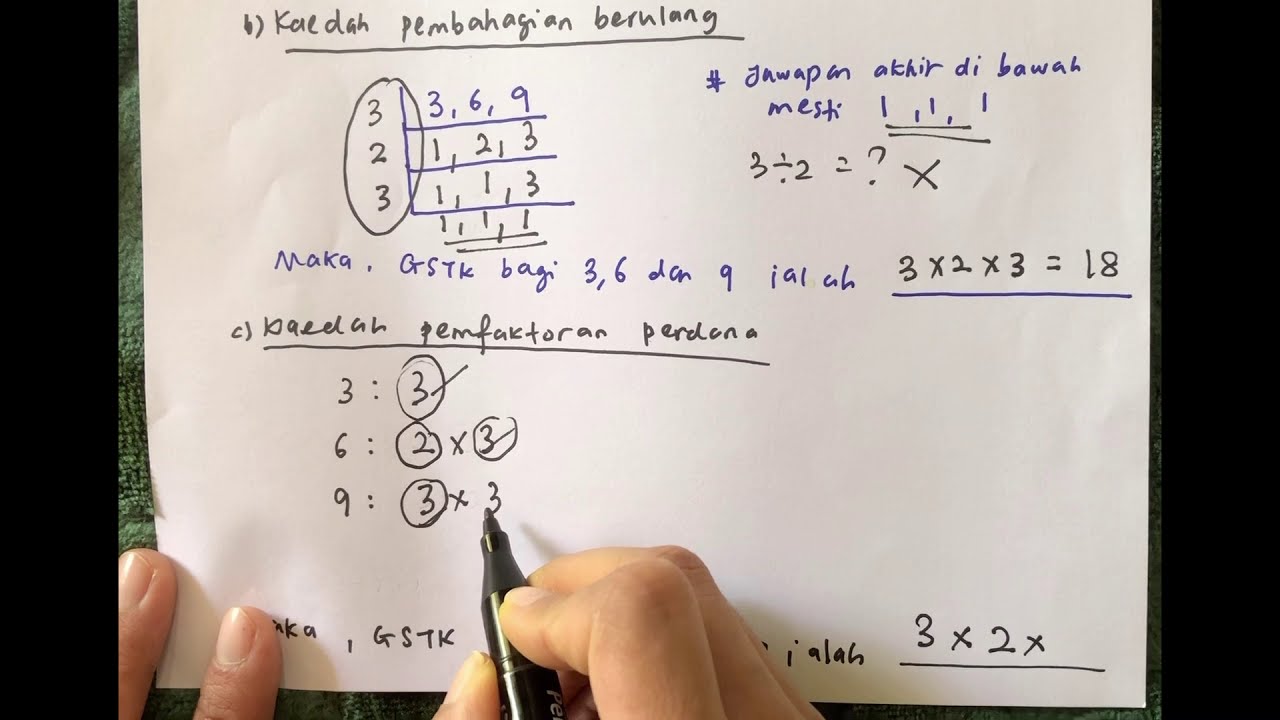 b) Kaedah pembahagian berulang
3 3, 6, 9
2 1, 2, 3
3 1, 1, 3
1, 1, 1
# Jawapan akhir di bawah
mesti 1, 1, 1
3÷2 = ? X
Maka, GSTK bagi 3, 6 dan 9 ialah 3 × 2 × 3 = 18
c) Kaedah pemfaktoran perdana
3 : 3 ✓
6 : 2 × 3 ✓
9 : 3 × 3
, GSTK ialah 3 × 2 ×